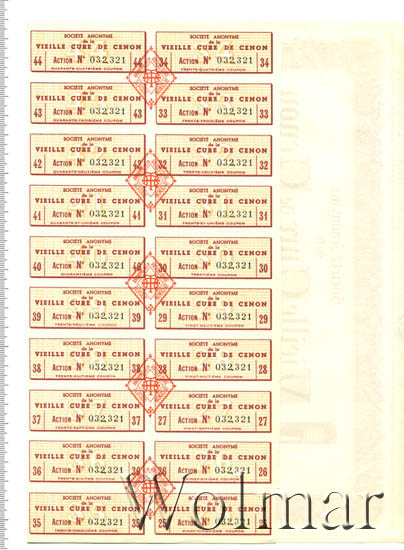 SOCIÉTÉ ANONYME
de la
VIEILLE CURE DE CENON
44 ACTION N° 032,321 44
QUARANTE-QUATRIÈME COUPON
SOCIÉTÉ ANONYME
de la
VIEILLE CURE DE CENON
34 ACTION N° 032,321 34
TRENTE-QUATRIÈME COUPON
SOCIÉTÉ ANONYME
de la
VIEILLE CURE DE CENON
43 ACTION N° 032,321 43
QUARANTE-TROISIÈME COUPON
SOCIÉTÉ ANONYME
de la
VIEILLE CURE DE CENON
33 ACTION N° 032,321 33
TRENTE-TROISIÈME COUPON
SOCIÉTÉ ANONYME
de la
VIEILLE CURE DE CENON
42 ACTION N° 032,321 42
QUARANTE-DEUXIÈME COUPON
SOCIÉTÉ ANONYME
de la
VIEILLE CURE DE CENON
32 ACTION N° 032,321 32
TRENTE-DEUXIÈME COUPON
SOCIÉTÉ ANONYME
de la
VIEILLE CURE DE CENON
41 ACTION N° 032,321 41
QUARANTE-ET-UNIÈME COUPON
SOCIÉTÉ ANONYME
de la
VIEILLE CURE DE CENON
31 ACTION N° 032,321 31
TRENTE-ET-UNIÈME COUPON
SOCIÉTÉ ANONYME
de la
VIEILLE CURE DE CENON
40 ACTION N° 032,321 40
QUARANTIÈME COUPON
SOCIÉTÉ ANONYME
de la
VIEILLE CURE DE CENON
30 ACTION N° 032,321 30
TRENTIÈME COUPON
SOCIÉTÉ ANONYME
de la
VIEILLE CURE DE CENON
39 ACTION N° 032,321 39
TRENTE-NEUVIÈME COUPON
SOCIÉTÉ ANONYME
de la
VIEILLE CURE DE CENON
29 ACTION N° 032,321 29
VINGT-NEUVIÈME COUPON
SOCIÉTÉ ANONYME
de la
VIEILLE CURE DE CENON
38 ACTION N° 032,321 38
TRENTE-HUITIÈME COUPON
SOCIÉTÉ ANONYME
de la
VIEILLE CURE DE CENON
28 ACTION N° 032,321 28
VINGT-HUITIÈME COUPON
SOCIÉTÉ ANONYME
de la
VIEILLE CURE DE CENON
37 ACTION N° 032,321 37
TRENTE-SEPTIÈME COUPON
SOCIÉTÉ ANONYME
de la
VIEILLE CURE DE CENON
27 ACTION N° 032,321 27
VINGT-SEPTIÈME COUPON
SOCIÉTÉ ANONYME
de la
VIEILLE CURE DE CENON
36 ACTION N° 032,321 36
TRENTE-SIXIÈME COUPON
SOCIÉTÉ ANONYME
de la
VIEILLE CURE DE CENON
26 ACTION N° 032,321 26
VINGT-SIXIÈME COUPON
SOCIÉTÉ ANONYME
de la
VIEILLE CURE DE CENON
35 ACTION N° 032,321 35
SOCIÉTÉ ANONYME
de la
VIEILLE CURE DE CENON
25 ACTION N° 032,321 25
Wolmar